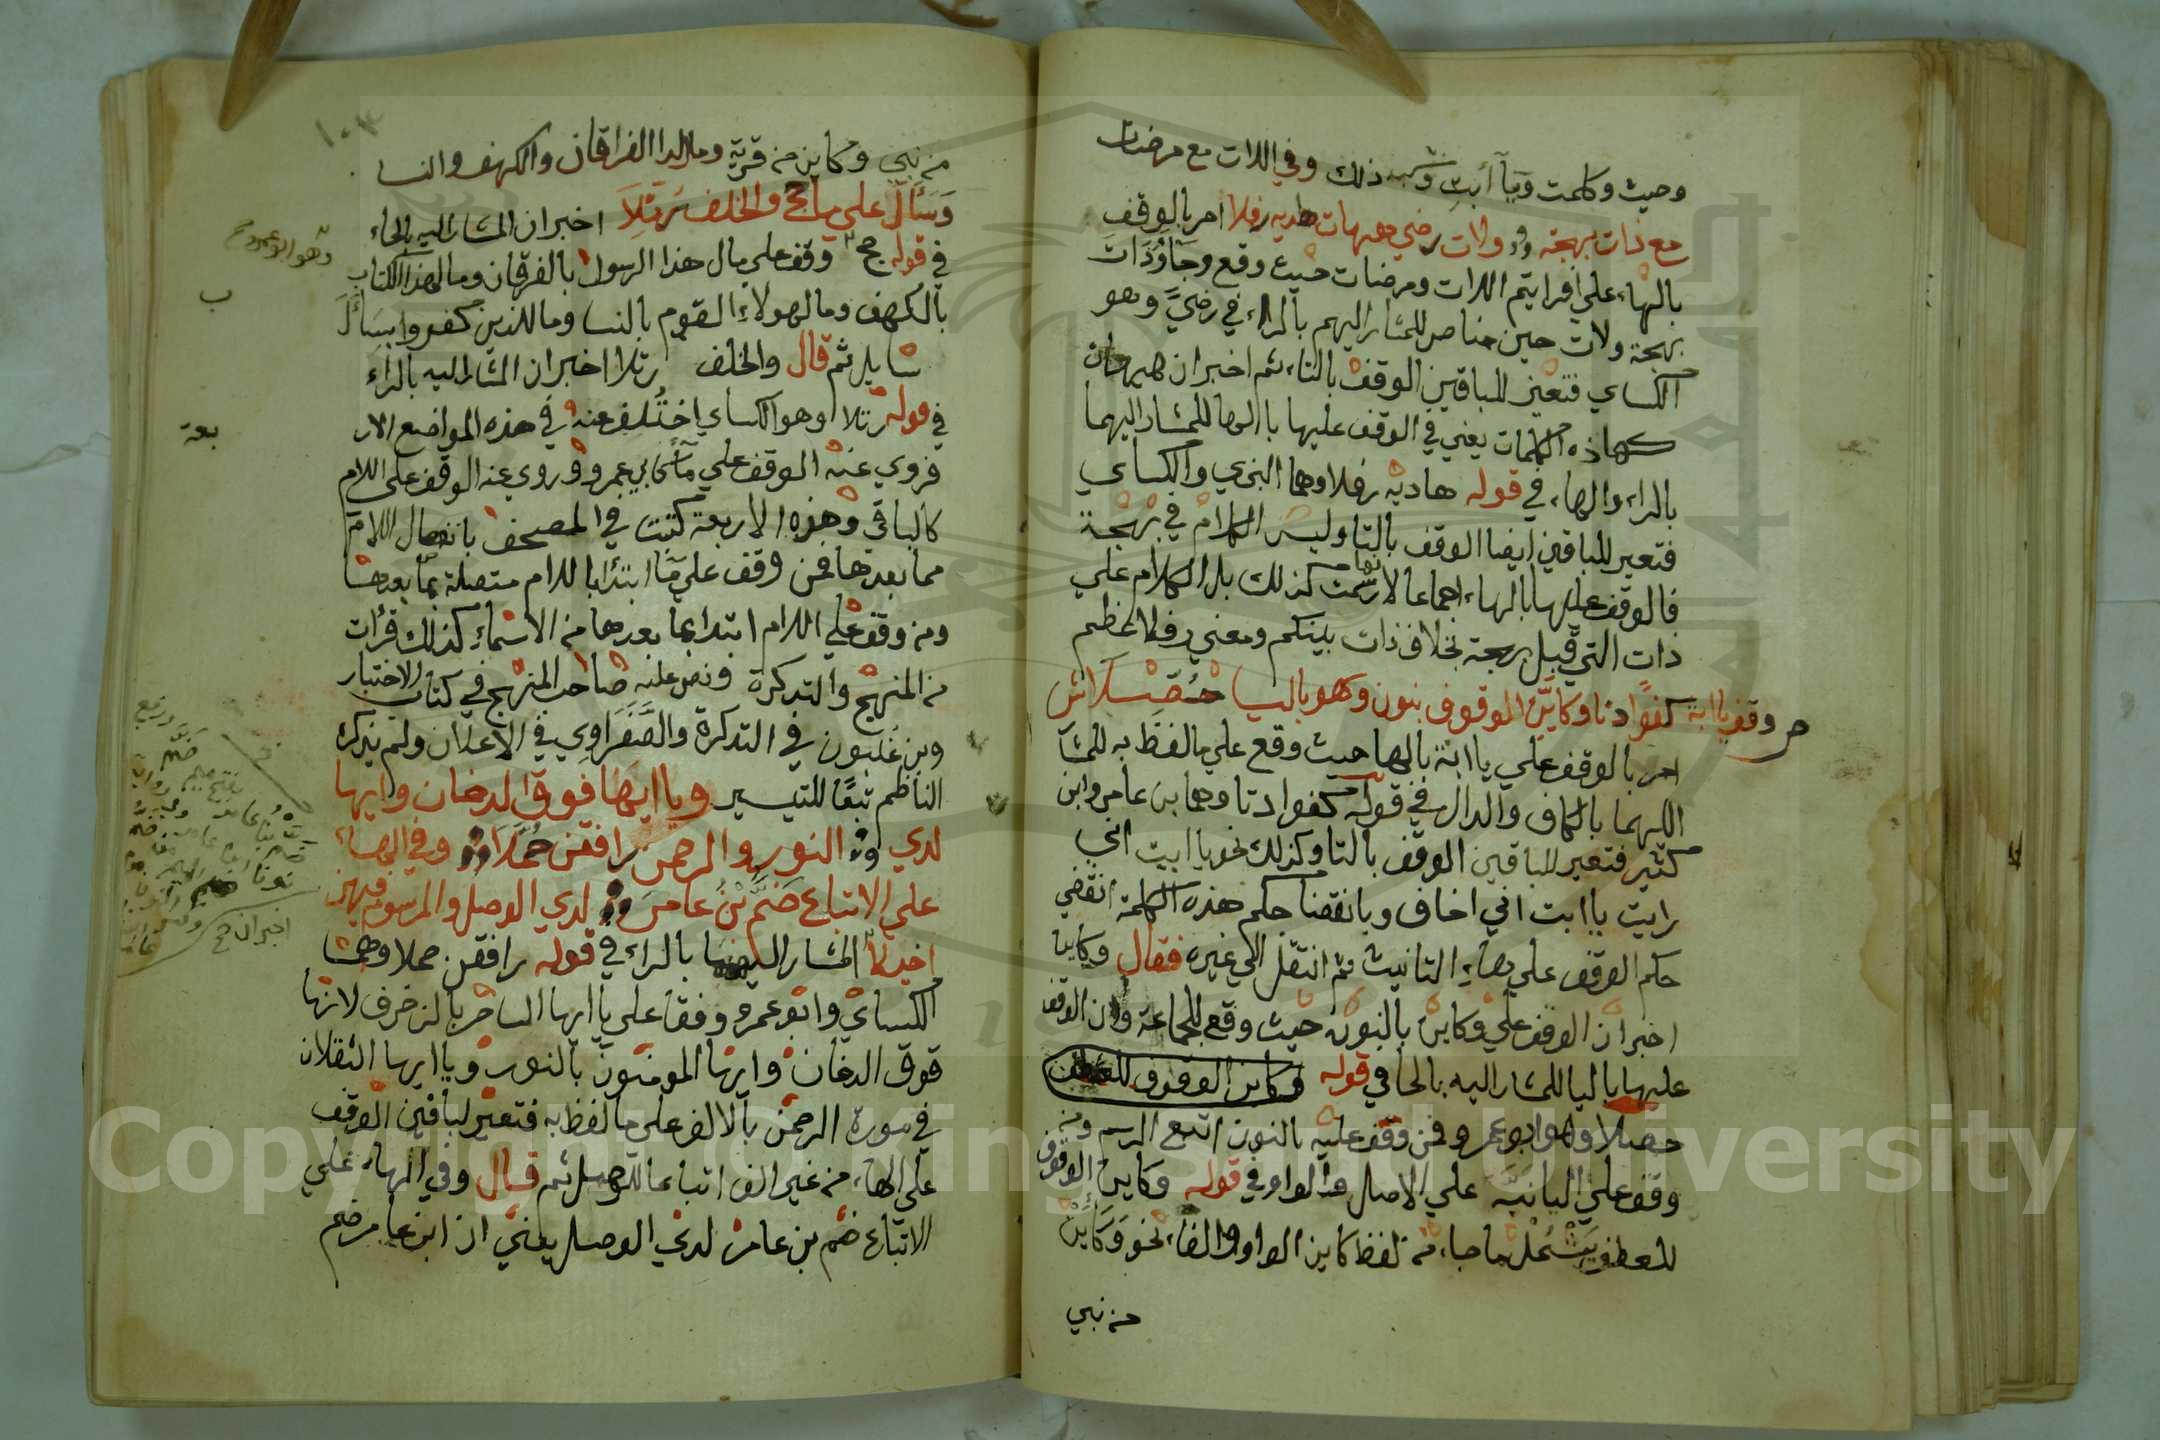 وحيث وكلمت ويآ أبت وشبه ذلك وفي اللات مع مرضات
مع ذات بهجة ولات رضي هيهات هاديه رفلا امر بالوقف
بالهاء علي افرايتم اللات ومرضات حيث وقع وجآ وُذَاتَ
بهجة ولات حين مناص للمشار اليهم بالراء في رضيً وهو
الكساي فتعين للباقين الوقف بالتاء ثم اخبر ان هيهات
كهاذه الكلمات يعني في الوقف عليها بالها للمشار اليهما
بالراء والهاء في قوله هاديه رفلا وهما البزي والكساي
فتعير للباقين ايضا الوقف بالتا وليس الكلام في بهجة
فالوقف عليها بالهاء اجماعا لانها رسمت كذلك بل الكلام علي
ذات التي قبل بهجة بخلاف ذات بينكم ومعني رفلا عظم
وقف يا ابة كفوًا دنا وكايّن الوقوف بنون وهو باليا حُصّلا
امر بالوقف علي يا ابة بالها حيث وقع علي ما لفظ به للمشا
اليهما بالكاف والدال في قوله كفوا دنا وهما بن عامر وابن
كثير فتعير للباقين الوقف بالتا وكذلك نحو يا ابت اني
رايت يا ابت اني اخاف وبانقضا حكم هذه الكلمة انقضي
حكم الوقف علي هاء التانيث ثم انتقل الي غيره فقال وكاين
اخبر ان الوقف علي وكاين بالنون حيث وقع للجماعة وان الوقف
عليها باليا للمشار اليه بالحا في قوله وكاين الوقوف
حصلا وهو ابو عمرو فمن وقف عليه بالنون اتبع الرسم ومن
وقف علي اليا نبه علي الاصل والواو في قوله وكاين الوقوف
للعطف يشمل ما جاء من لفظ كاين بالواو والفاء نحو وَكَأَيّنْ
من نبي
١٠٣
من نبي وكاين من قرية ومال لدا الفرقان والكهف والنسا
وَسَأَلَ علي ما حج والخلف رُتّلاَ اخبر ان المشار اليه بالحاء
في قوله حج وقف علي مال هذا الرسول بالفرقان ومال هذا الكتاب
وهو ابو عمرو
بالكهف ومال هولاء القوم بالنسا ومال للذين كفروا بِسَأَلَ
سايل ثم قال والخلف رتلا اخبر ان المشار اليه بالراء
في قوله رتلا وهو الكساي اختلف عنه في هذه المواضع الار
بعة
فروي عنه الوقف علي ما كابي عمرو وروي عنه الوقف علي اللام
كالباقي وهذه الاربعة كتبت في المصحف بانفصال اللام
مما بعدها فمن وقف علي ما ابتدا باللام متصلة بما بعدها
ومن وقف علي اللام ابتدا بما بعدها من الاسماء كذلك قرات
من المنهج والتذكرة ونص عليه صاحب المنهج في كتاب الاختيار
وبن غلبون في التذكرة والصَّفَراوِي في الاعلان ولم يذكره
الناظم تبعًا للتيسير ويا ايها فوق الدخان وايها
لدي النور والرحمن رافقن حُمَّلا وفي الهاء
علي الاتباع ضَمَّ بنُ عامرٍ لدي الوصل والمرسوم فيهن
اخيلا المشار اليهما بالراء في قوله رافقن حملا وهما
الكساي وابو عمرو وقفا علي يا ايها الساحر بالزخرف لانها
فوق الدخان وايها المومنون بالنور ويا ايها الثقلان
في سورة الرحمن بالالف علي ما لفظ به فتعير لباقين الوقف
علي الهاء من غير الف اتباعا للوصل ثم قال وفي الهاء علي
الاتباع ضم بن عامر لدي الوصل يعني ان ابن عامر ضم
Copyright © King Saud University